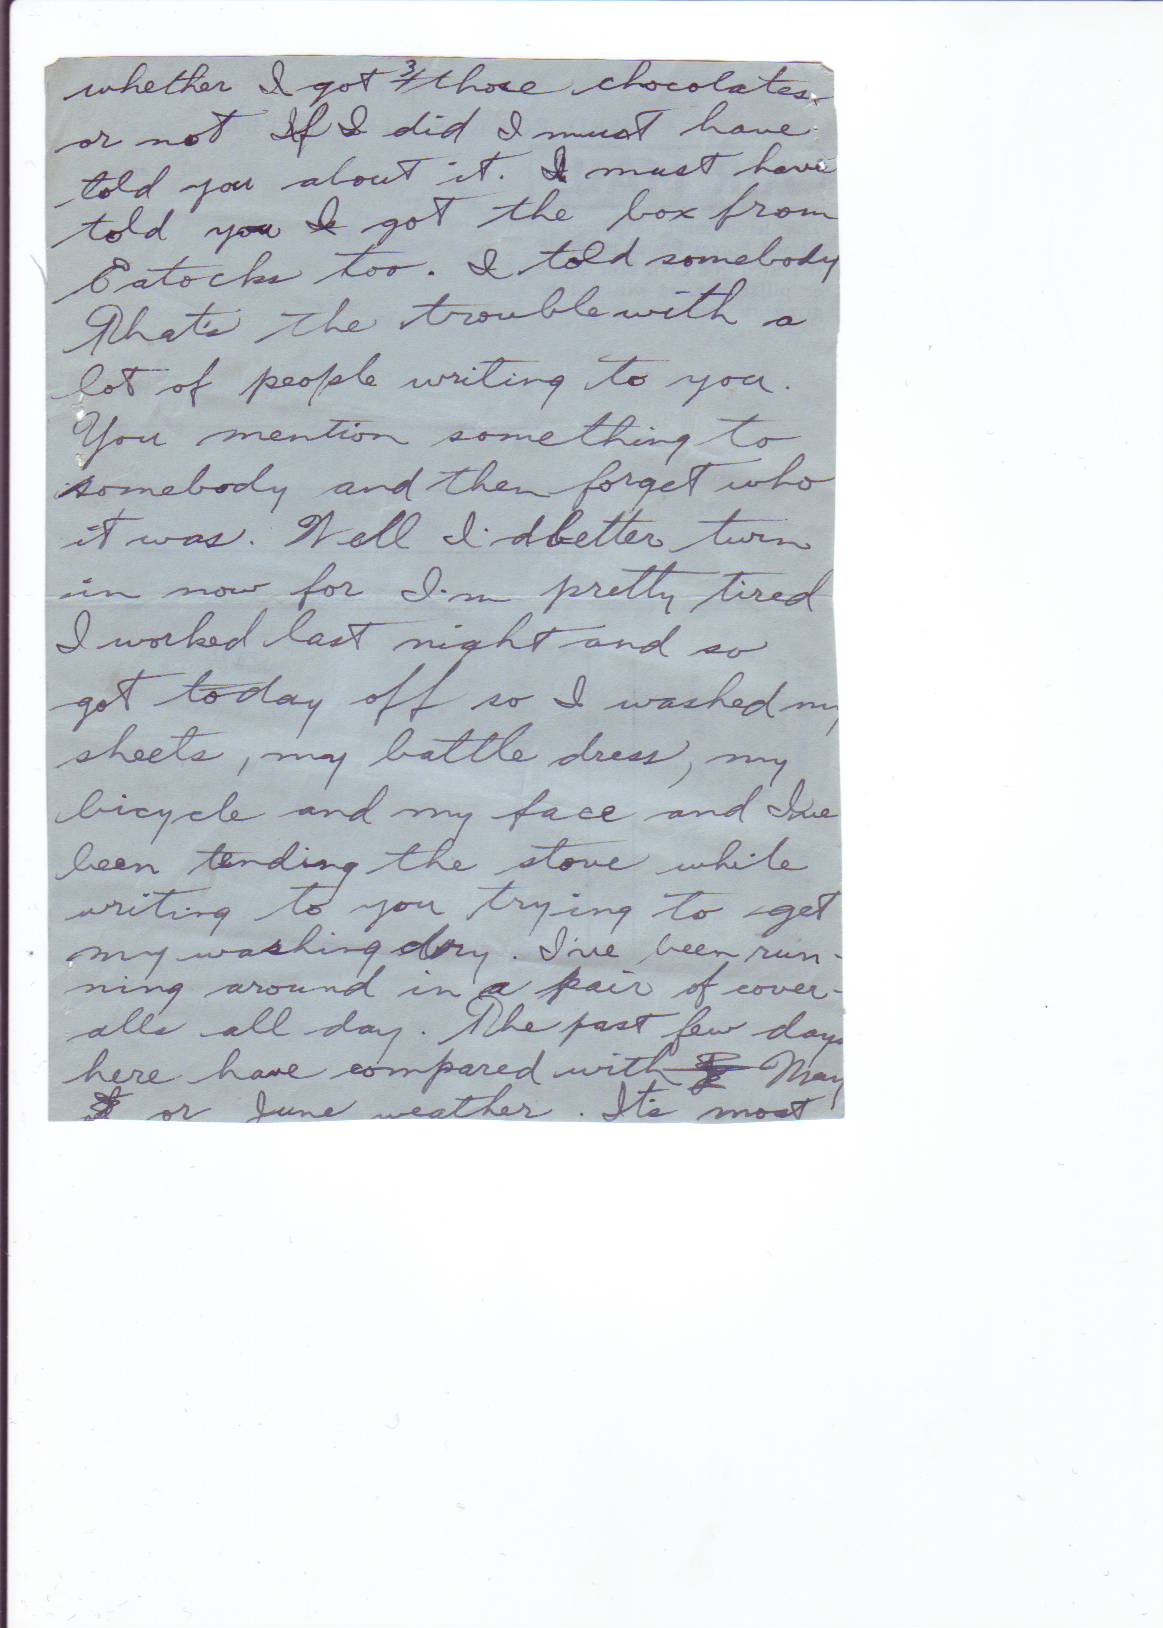 whether I got those chocolates
or not If I did I must have
told you about it. I must have
told you I got the box from
Eatocks too. I told somebody
That's the trouble with a
lot of people writing to you.
You mention something to
somebody and then forget who
it was. Well I'd better turn
in now for I'm pretty tired
I worked last night and so
got today off so I washed my
sheets, my battle dress, my
bicycle and my face and I've
been tending the stove while
writing to you trying to get
my washing dry. I've been run-
ning around in a pair of cover-
alls all day. The past few days
here have compared with May
or June weather. It's most